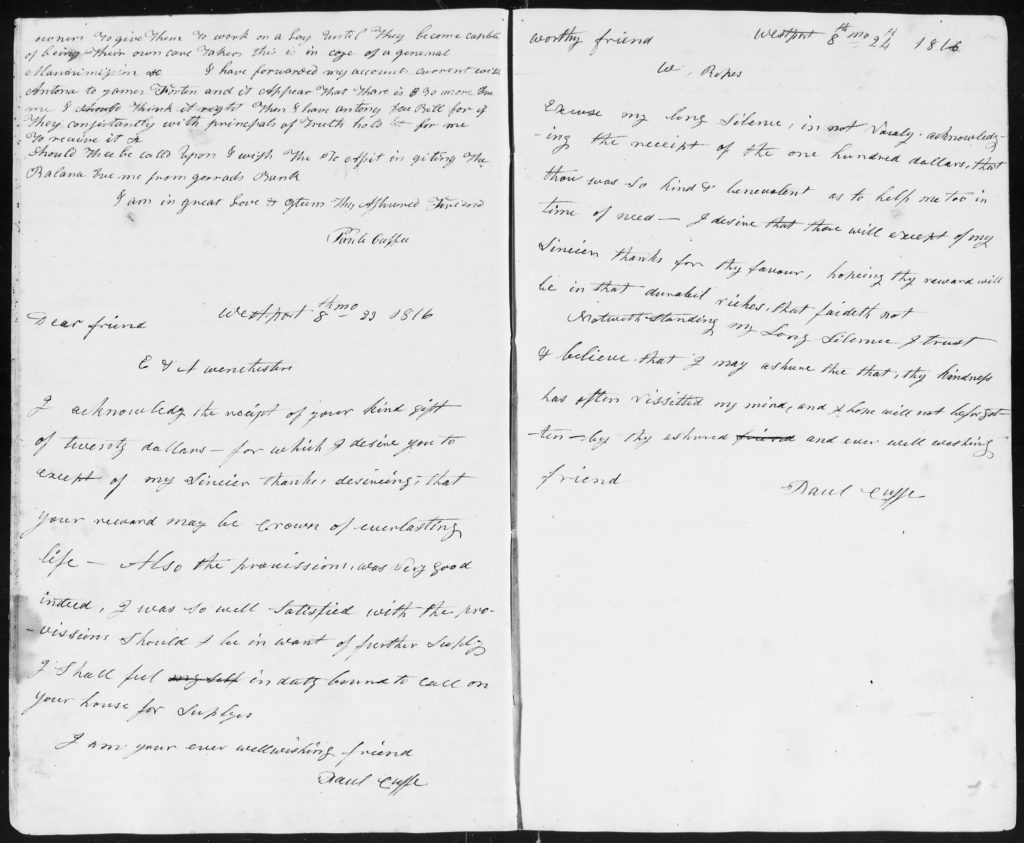 owners to give them to work on a lay until they become capebel
of being their own care takers this is in case of a general
Manumission &c I have forwarded my account current with
Antona to James Forten and it appear that thare is $ 30 more Due
me I should think it right then I have antony bill for if
they consistantly with prinsepals of truth hold it for me
to receive it
Should thee be calld upon I wish the to assist in giting the
Balana Due me from gerrads Bank
I am in great Love & esteem thy ashured Friend
Paul Cuffee
Westport 8th mo 23 1816
Dear friend
E & A wenchesters
I acknowledg the receipt of your kind gift
of twenty dollars — for which I desire you to
except of my Sincier thanks, desireing, that
your reward may be Crown of everlasting
life — Also the provissions, was very good
indeed, I was so well Satisfied with the pro-
-vissions Should I be in want of further Suply
I Shall feel my self in duty bound to call on
your house for Suplyes
I am your ever wellwishing friend
Paul Cuffe
Westport 8th mo 24th 1816
worthy friend
W, Ropes
Excuse my long Silence, in not Sooner acknowledg-
-ing the receipt of the one hundred dollars, that
thou was so kind & benevolent as to help me too in
time of need — I desire that thou will except of my
Sincier thanks for thy favour, hopeing thy reward will
be in that durabel riches, that faideth not
Notwithstanding my Long Silence I trust
& believe that I may ashure thee that, thy kindness
has often vissitted my mind, and I hope will not be forgot
-ten — by thy ashured friend and ever well weshing
friend
Paul Cuffe